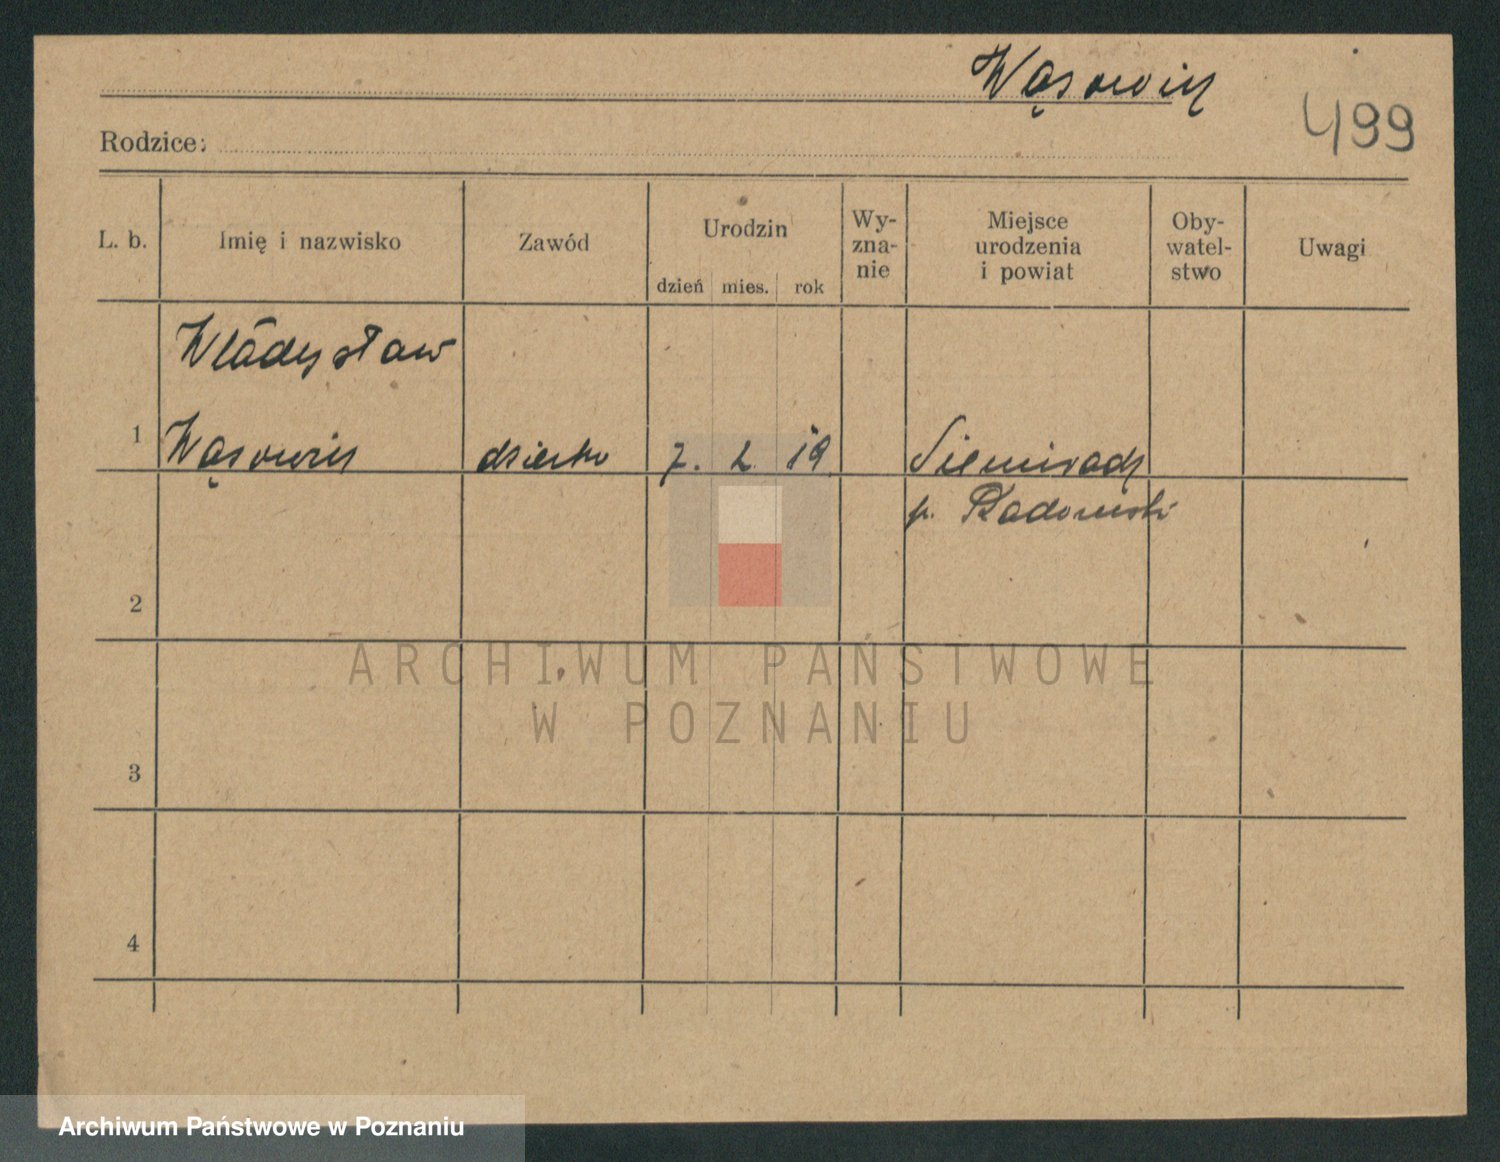 Wąsowicz
499
Rodzice:
L. b. Imię i nazwisko Zawód Urodzin dzień mies. rok Wy-zna-nie Miejsce urodzenia i powiat Oby-watel-stwo Uwagi
Władysław
1 Wąsowicz dziecko 7. 2. 19
p. Radomski
2
ARCHIWUM PAŃSTWOWE
W POZNANIU
3
4
Archiwum Państwowe w Poznaniu